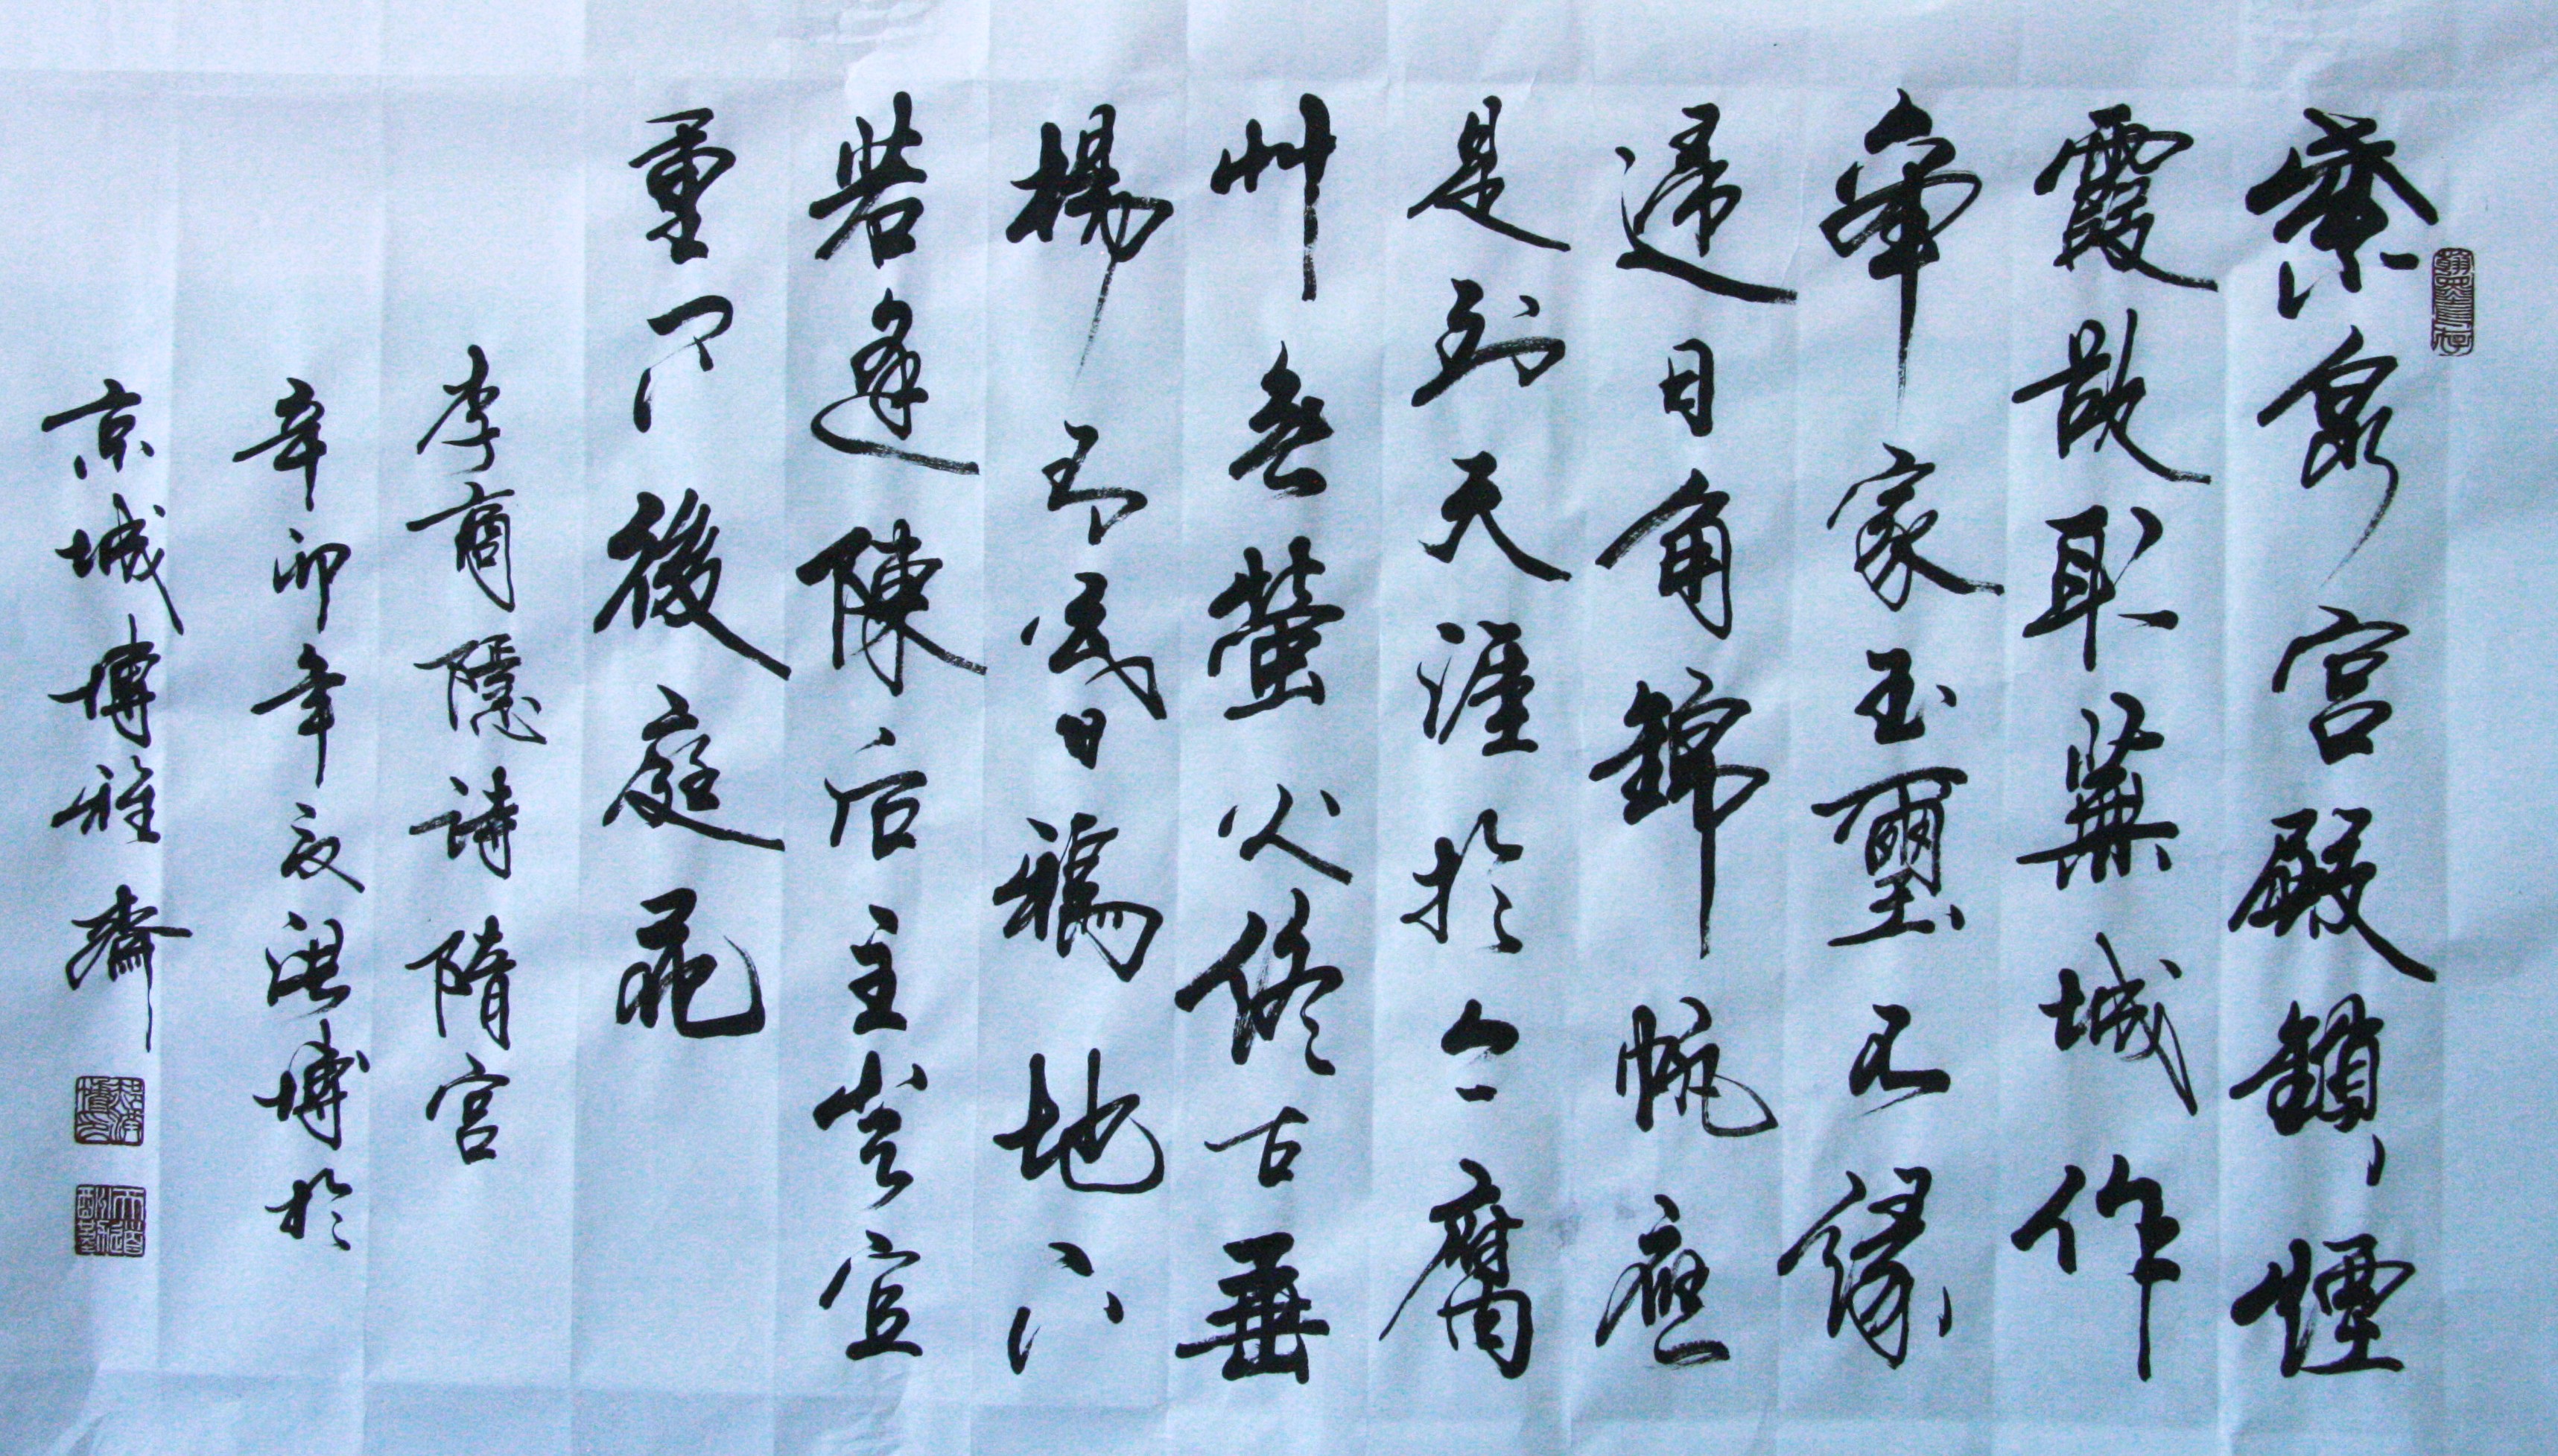 紫泉宮殿鎖煙
霞取蕪城作
帝家玉璽不緣
歸日角錦帆應
是到天涯於今腐
艸無螢火終古垂
楊日鴉地下
若逢陳后主豈宜
重問後庭花
李商隱詩隋宮
辛卯年夏洪博於
京城博雅齋